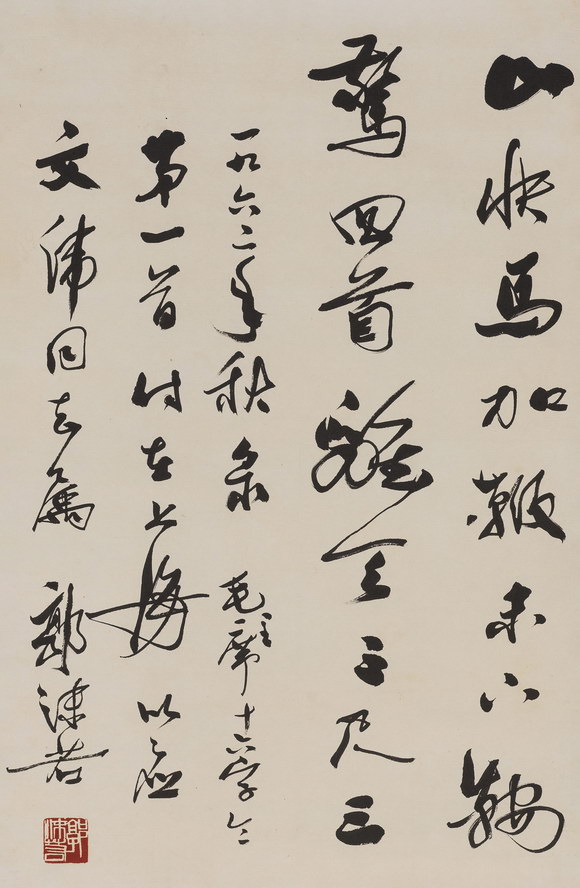 山快馬加鞭未下鞍
驚回首離天三尺三
一九六二年秋录毛主席十六字令
第一首时在上海以应
文同志属 郭沫若
郭沫若